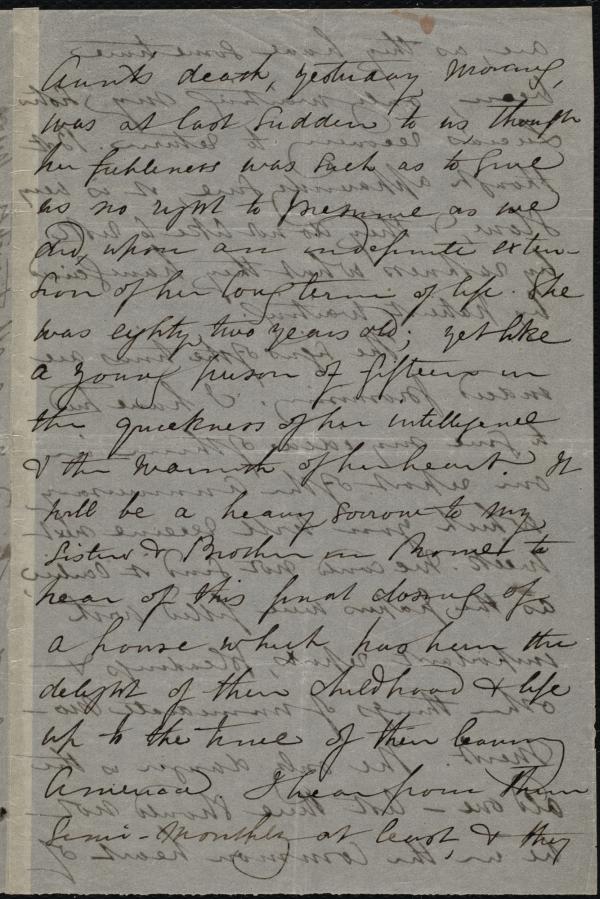 Aunt's death, yesterday morning,
was at last sudden to us though
her feebleness was such as to give
us no right to presume as we
did, upon an indefinite exten-
sion of her long term of life. She
was eighty two years old; yet like
a young person of fifteen in
the quickness of her intelligence
& the warmth of her heart. It
will be a heavy sorrow to my
Sister & Brother in Rome to
hear of this final closing of
a house which has been the
delight of their childhood & life
up to the time of their leaving
America. I hear from them
Semi-monthly at least, & they